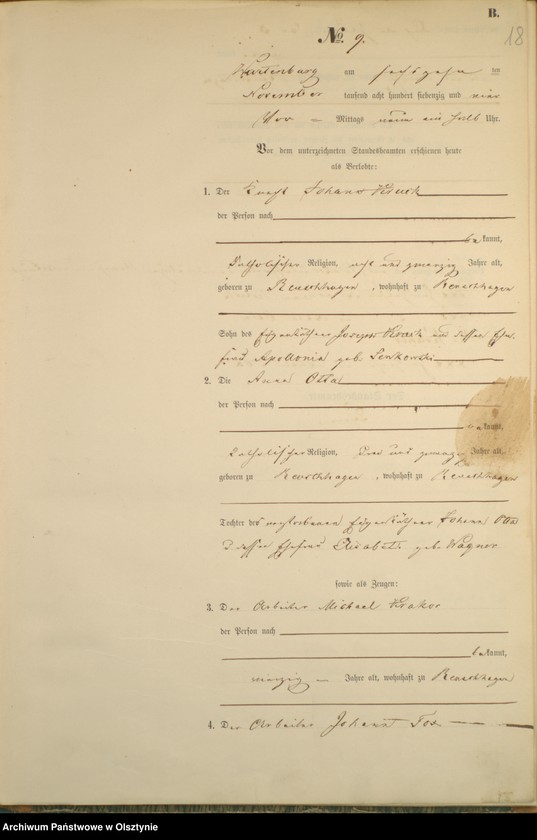 B.
18
No. 9.
Wartenburg am sechszehn ten
November tausend acht hundert siebenzig und vier
Vor — Mittags neun ein halb Uhr.
Vor dem unterzeichneten Standesbeamten erschienen heute
als Verlobte:
1. Der Knecht Johann
der Person nach
bekannt,
katholischer Religion, acht und zwanzig Jahre alt,
geboren zu Reuschhagen, wohnhaft zu Reuschhagen
Sohn des Eigenkäthner Joseph und dessen Ehe-
frau Apollonia geb. Senkowski
2. Die Anna Otta
der Person nach
bekannt,
katholischer Religion, drei und zwanzig Jahre alt,
geboren zu Reuschhagen, wohnhaft zu Reuschhagen
Tochter des verstorbenen Eigenkäthner Johann Otta
dessen Ehefrau Elisabeth geb. Wagner
sowie als Zeugen:
3. Der Arbeiter Michael
der Person nach
bekannt,
vierzig — Jahre alt, wohnhaft zu Reuschhagen
4. Der Arbeiter Johann
Archiwum Państwowe w Olsztynie